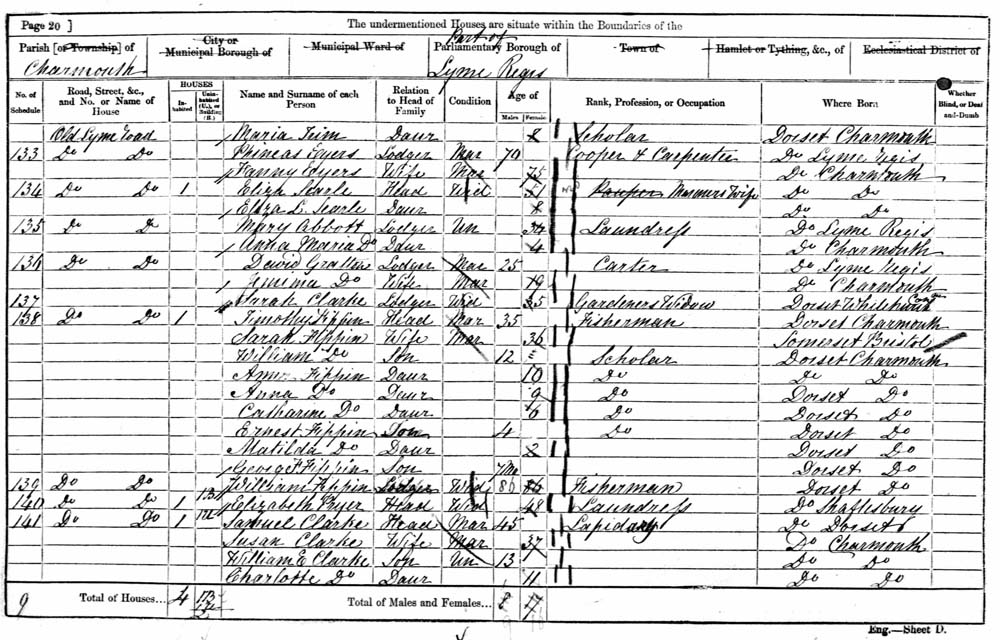 Page 20 ] The undermentioned Houses are situate within the Boundaries of the
Parish [or Township] of City or Municipal Borough of Municipal Ward of Part of Parliamentary Borough of Town of Hamlet or Tything, &c., of Ecclesiastical District of
Charmouth Lyme Regis
No. of Schedule Road, Street, &c., and No. or Name of House HOUSES Inhabited Uninhabited (U.), or Building (B.) Name and Surname of each Person Relation to Head of Family Condition Age of Males Females Rank, Profession, or Occupation Where Born Whether Blind, or Deaf-and-Dumb
Old Lyme Road Maria Daur 8 Scholar Dorset Charmouth
133 Do Do Phineas Lodger Mar 70 Cooper & Carpenter Do Lyme Regis
Fanny Wife Mar 75 Do Charmouth
134 Do Do 1 Eliza Searle Head 51 Pauper Mariners Wife Do Do
Eliza L Searle Daur 8 Do Do
135 Do Do Mary Abbott Lodger Un Laundress Do Lyme Regis
Anna Maria Do Daur 4 Do Charmouth
136 Do Do David Lodger Mar 25 Carter Do Lyme Regis
Jemima Do Wife Mar 19 Do Charmouth
137 Sarah Clarke Lodger Wid 35 Gardeners Widow Dorset
138 Do Do 1 Timothy Fippin Head Mar 35 Fisherman Dorset Charmouth
Sarah Fippin Wife Mar 36 Somerset Bristol
William Do Son 12 Scholar Dorset Charmouth
Fippin Daur 10 Do Do Do
Anna Do Daur 9 Do Dorset Do
Catharine Do Daur 6 Do Dorset Do
Ernest Fippin Son 4 Do Dorset Do
Matilda Do Daur 2 Dorset Do
George F Fippin Son 7 Mo Dorset Do
139 Do Do William Fippin Lodger Wid 86 Fisherman Dorset Do
140 Do Do 1 Elizabeth Fryer Head Wid 48 Laundress Do Shaftesbury
141 Do Do 1 Samuel Clarke Head Mar 45 Lapidary Do Dorset
Susan Clarke Wife Mar 37 Do Charmouth
William E Clarke Son Un 13 Do Do
Charlotte Do Daur 11 Do Do
9 Total of Houses... 4 Total of Males and Females... 8 17
Eng.—Sheet D.